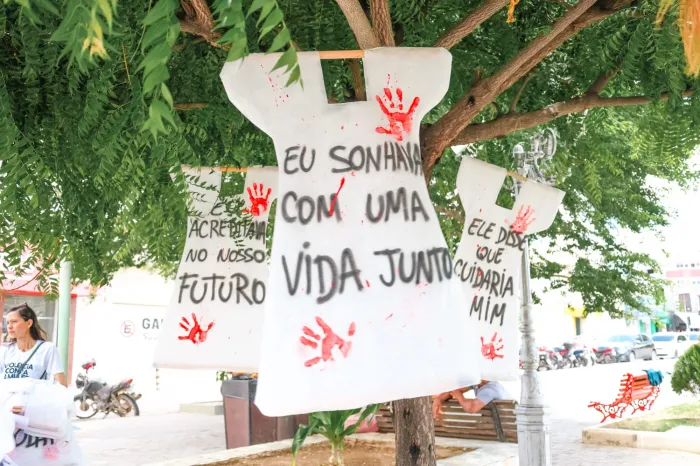 EU SONHAVA
COM UMA
VIDA JUNTO
EU
ACREDITAVA
NO NOSSO
FUTURO
ELE DISSE
QUE
CUIDARIA
MIM